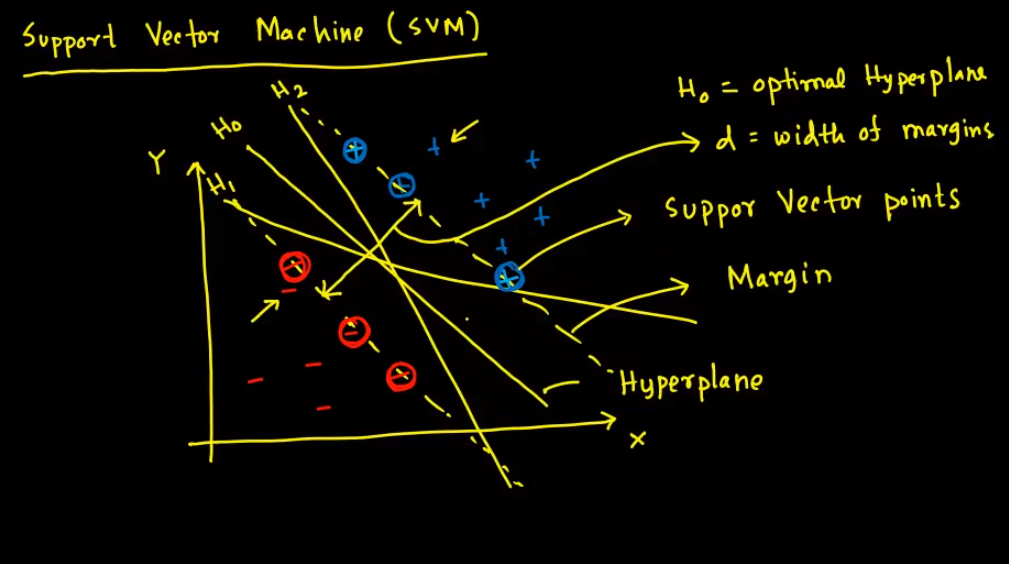 Support Vector Machine (SVM)
H2
H0
Y
H1
H0 = optimal Hyperplane
d = width of margins
Suppor Vector points
Margin
Hyperplane
X